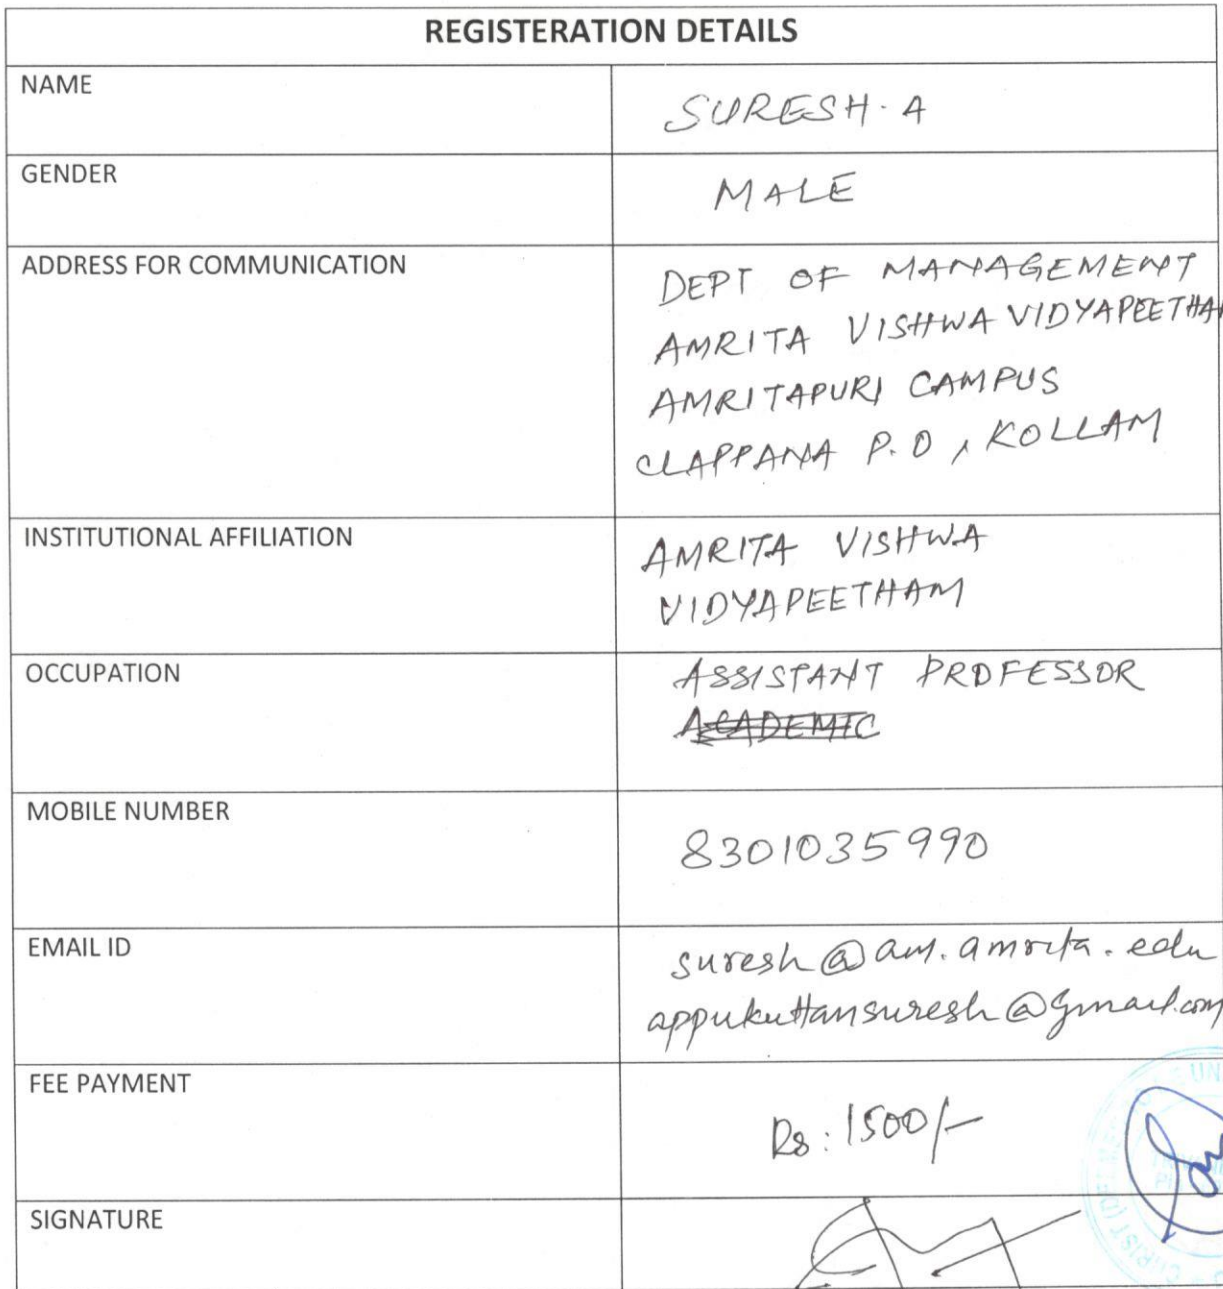 REGISTERATION DETAILS
NAME
SURESH. A
GENDER
MALE
ADDRESS FOR COMMUNICATION
DEPT OF MANAGEMENT
AMRITA VISHWA VIDYAPEETHAM
AMRITAPURI CAMPUS
CLAPPANA P.O, KOLLAM
INSTITUTIONAL AFFILIATION
AMRITA VISHWA
VIDYAPEETHAM
OCCUPATION
ASSISTANT PROFESSOR
ACADEMIC
MOBILE NUMBER
8301035990
EMAIL ID
suresh@am.amrita.edu
appukuttansuresh@gmail.com
FEE PAYMENT
Rs: 1500/-
SIGNATURE